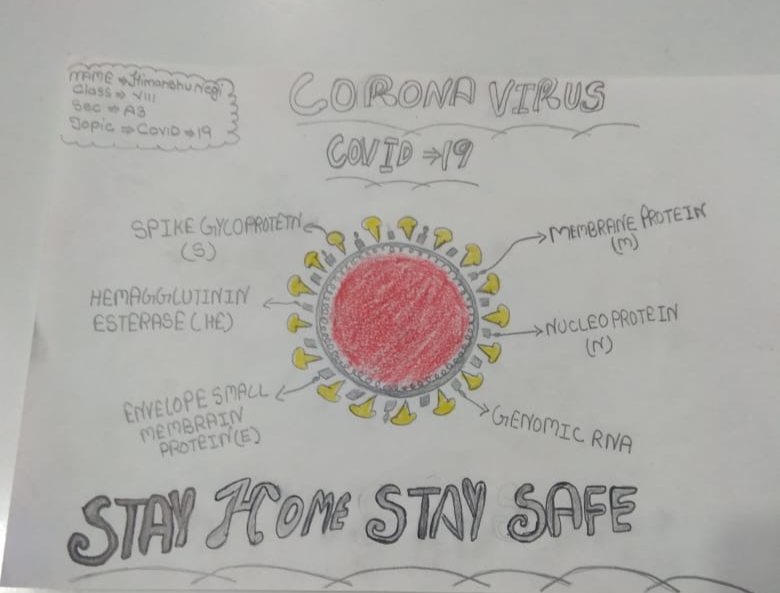 NAME ⇒ Himanshu Negi
Class ⇒ VIII
Sec ⇒ A3
Topic ⇒ Covid ⇒ 19
CORONA VIRUS
COVID ⇒ 19
SPIKE GYCOPROTEIN
(S)
MEMBRANE PROTEIN
(M)
HEMAGGLUTININ
ESTERASE (HE)
NUCLEOPROTEIN
(N)
ENVELOPE SMALL
MEMBRAIN
PROTEIN (E)
GENOMIC RNA
STAY HOME STAY SAFE